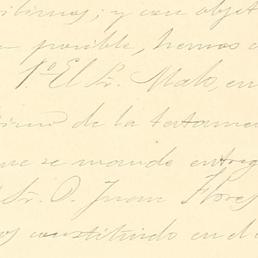 cibimos; y con objet
posible, hemos a
1º El Sr. Malo, en
de la testamen
que se mande entreg
Sr. D. Juan Flores
os constituido en el